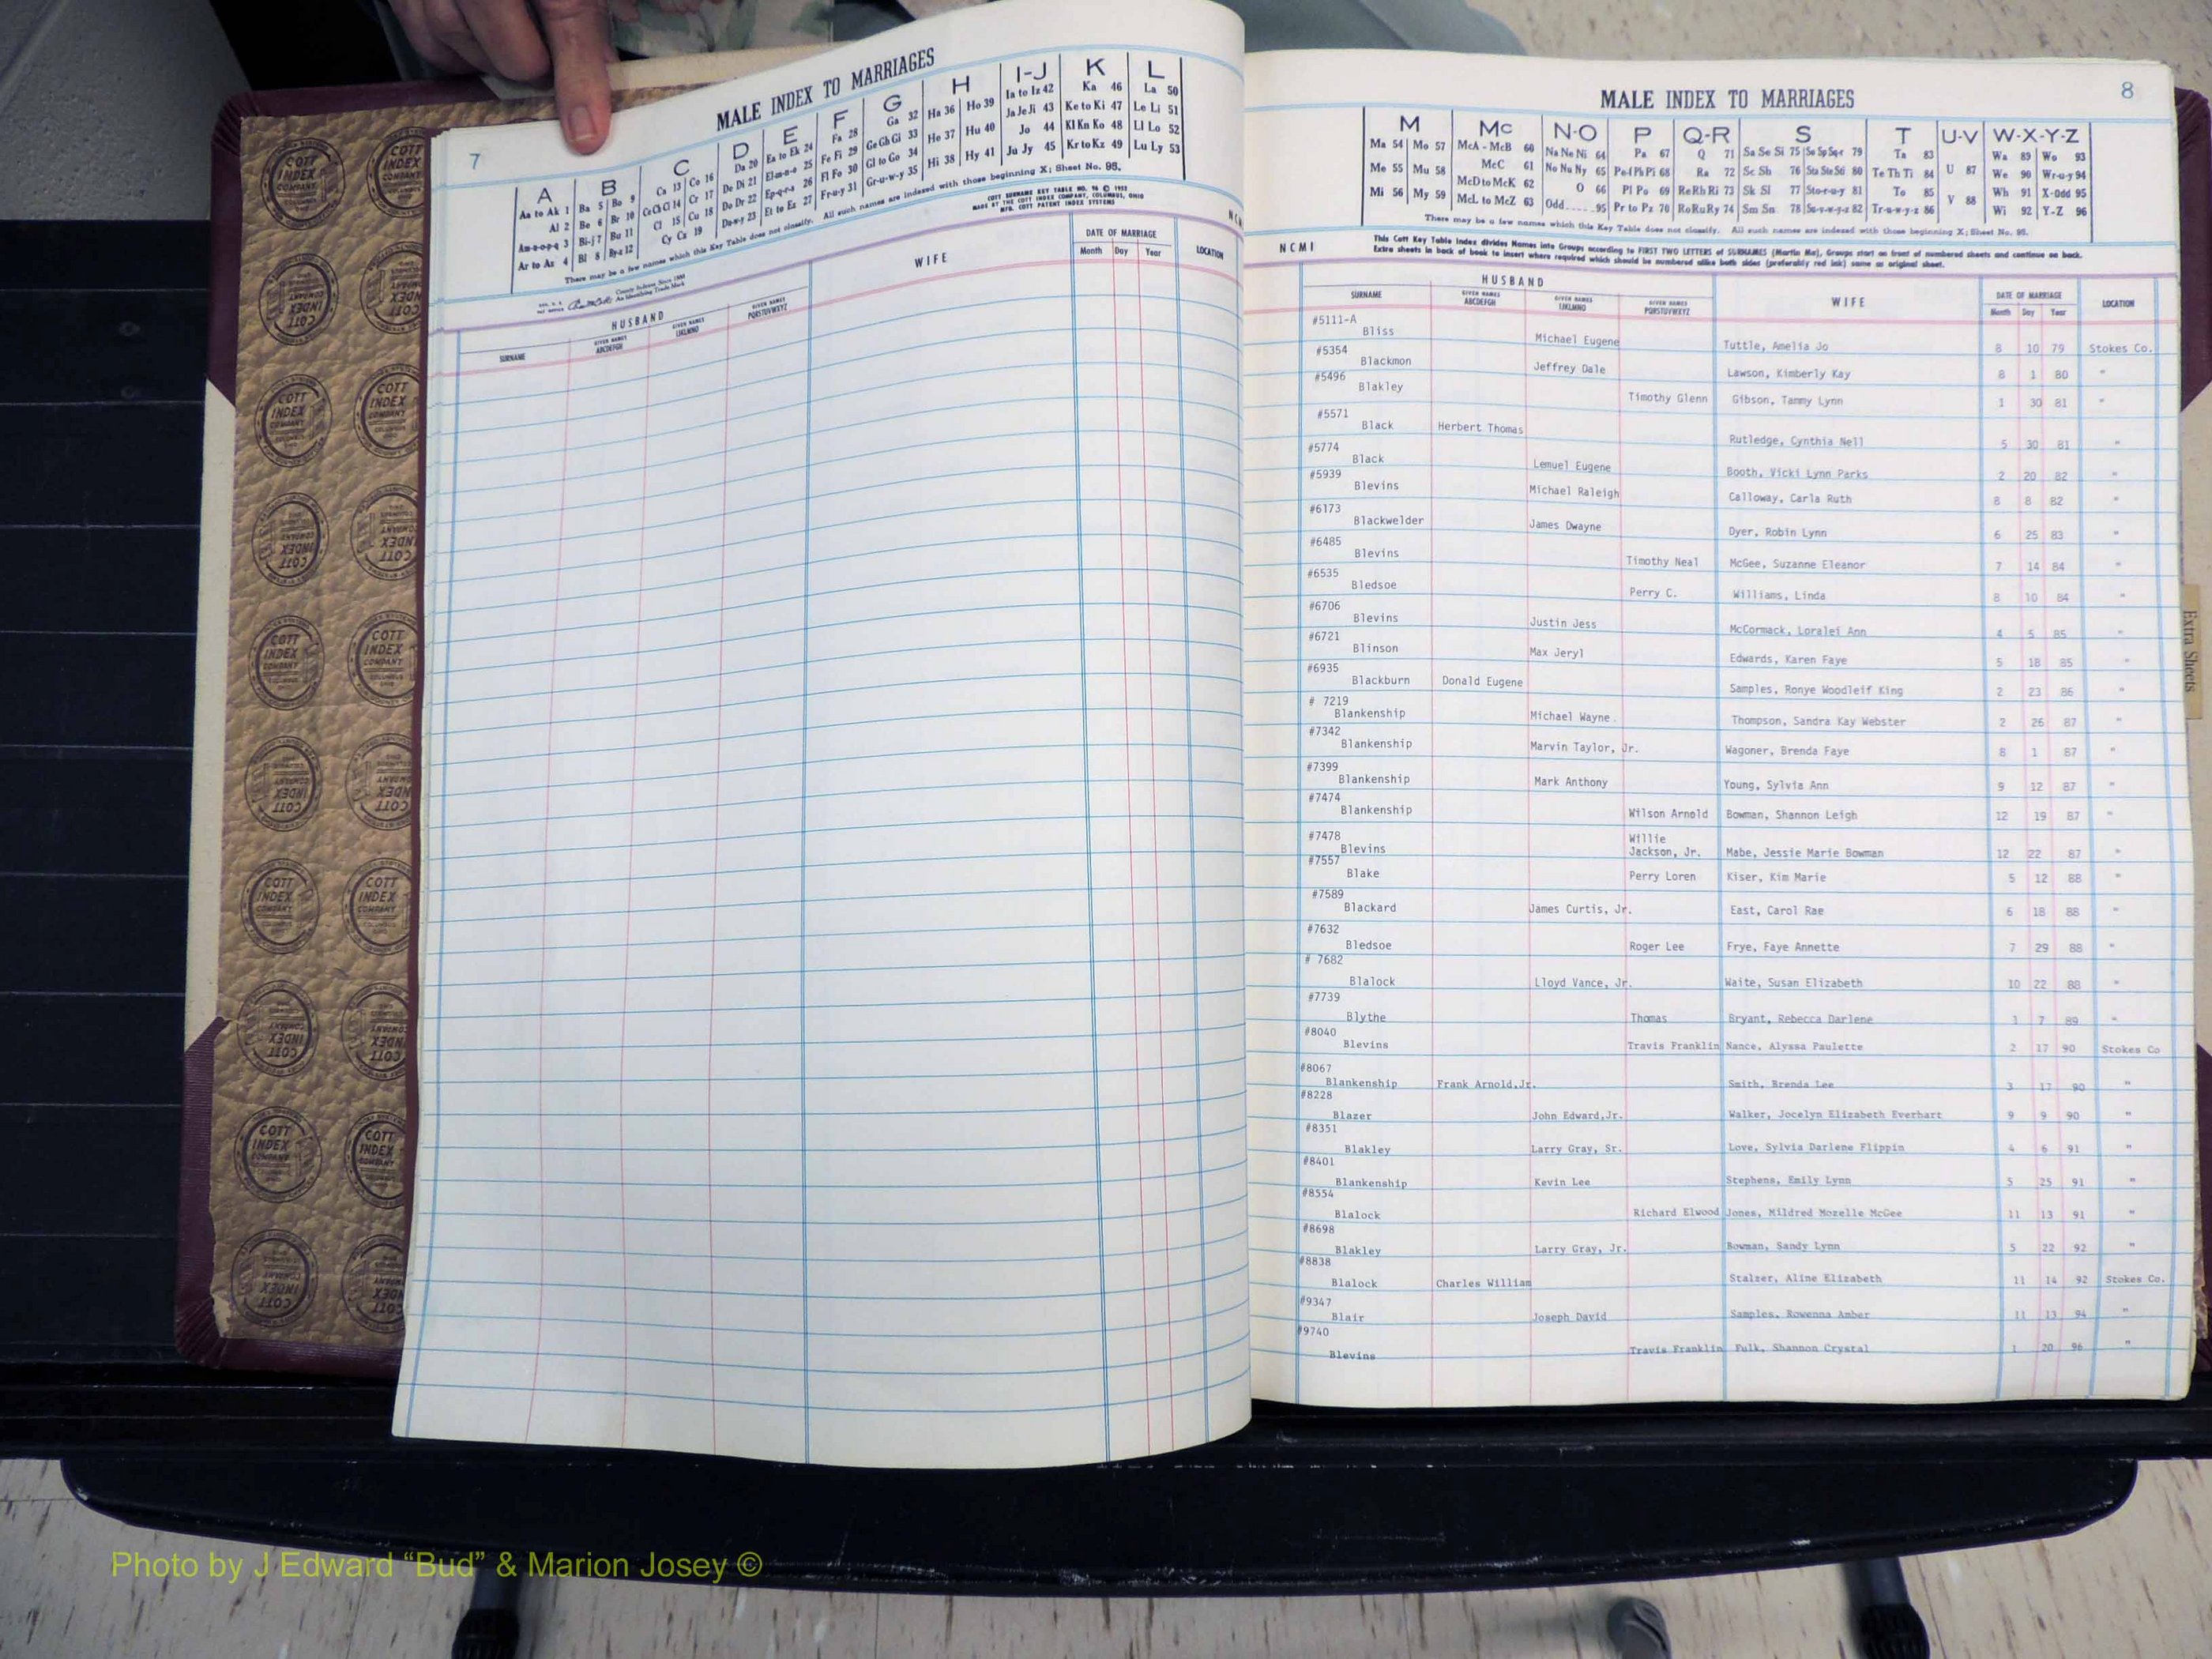 7
MALE INDEX TO MARRIAGES
A B C D E F G H I-J K L
Aa to Ak 1 Ba 5 Bo 9 Ca 13 Co 16 Da 20 Ea to Ek 24 Fa 28 Ga 32 Ha 36 Ho 39 Ia to Iz 42 Ka 46 La 50
Al 2 Be 6 Br 10 Ce Ch Ci 14 Cr 17 De Di 21 El-m-n-o 25 Fe Fi 29 Ge Gh Gi 33 He 37 Hu 40 Ja Je Ji 43 Ke to Ki 47 Le Li 51
Am-n-o-p-q 3 Bi-j 7 Bu 11 Cl 15 Cu 18 Do Dr 22 Ep-q-r-s 26 Fl Fo 30 Gl to Go 34 Hi 38 Hy 41 Jo 44 Kl Kn Ko 48 Ll Lo 52
Ar to Az 4 Bl 8 By-z 12 Cy Cz 19 Du-w-y 23 Et to Ez 27 Fr-u-y 31 Gr-u-w-y 35 Ju Jy 45 Kr to Kz 49 Lu Ly 53
There may be a few names which this Key Table does not classify. All such names are indexed with those beginning X; Sheet No. 95.
COTT SURNAME KEY TABLE NO. 96 © 1952
MADE BY THE COTT INDEX COMPANY, COLUMBUS, OHIO
MFG. COTT PATENT INDEX SYSTEMS
County Indexes Since 1888
An Identifying Trade Mark
HUSBAND WIFE DATE OF MARRIAGE LOCATION
SURNAME GIVEN NAMES ABCDEFGH GIVEN NAMES IJKLMNO GIVEN NAMES PQRSTUVWXYZ Month Day Year
8
MALE INDEX TO MARRIAGES
M Mc N-O P Q-R S T U-V W-X-Y-Z
Ma 54 Mo 57 McA - McB 60 Na Ne Ni 64 Pa 67 Q 71 Sa Se Si 75 So Sp Sq-r 79 Ta 83 U 87 Wa 89 Wo 93
Me 55 Mu 58 McC 61 No Nu Ny 65 Pe-f Ph Pi 68 Ra 72 Sc Sh 76 Sta Ste Sti 80 Te Th Ti 84 We 90 Wr-u-y 94
Mi 56 My 59 McD to McK 62 O 66 Pl Po 69 Re Rh Ri 73 Sk Sl 77 Sto-r-u-y 81 To 85 V 88 Wh 91 X-Odd 95
McL to McZ 63 Odd 95 Pr to Pz 70 Ro Ru Ry 74 Sm Sn 78 Su-v-w-y-z 82 Tr-u-w-y-z 86 Wi 92 Y-Z 96
There may be a few names which this Key Table does not classify. All such names are indexed with those beginning X; Sheet No. 95.
NCMI This Cott Key Table Index divides Names into Groups according to FIRST TWO LETTERS of SURNAMES (Martin Ma), Groups start on front of numbered sheets and continue on back.
Extra sheets in back of book to insert where required which should be numbered alike both sides (preferably red ink) same as original sheet.
HUSBAND WIFE DATE OF MARRIAGE LOCATION
SURNAME GIVEN NAMES ABCDEFGH GIVEN NAMES IJKLMNO GIVEN NAMES PQRSTUVWXYZ Month Day Year
#5111-A
Bliss Michael Eugene Tuttle, Amelia Jo 8 10 79 Stokes Co.
#5354
Blackmon Jeffrey Dale Lawson, Kimberly Kay 8 1 80 "
#5496
Blakley Timothy Glenn Gibson, Tammy Lynn 1 30 81 "
#5571
Black Herbert Thomas Rutledge, Cynthia Nell 5 30 81 "
#5774
Black Lemuel Eugene Booth, Vicki Lynn Parks 2 20 82 "
#5939
Blevins Michael Raleigh Calloway, Carla Ruth 8 8 82 "
#6173
Blackwelder James Dwayne Dyer, Robin Lynn 6 25 83 "
#6485
Blevins Timothy Neal McGee, Suzanne Eleanor 7 14 84 "
#6535
Bledsoe Perry C. Williams, Linda 8 10 84 "
#6706
Blevins Justin Jess McCormack, Loralei Ann 4 5 85 "
#6721
Blinson Max Jeryl Edwards, Karen Faye 5 18 85 "
#6935
Blackburn Donald Eugene Samples, Ronye Woodleif King 2 23 86 "
# 7219
Blankenship Michael Wayne Thompson, Sandra Kay Webster 2 26 87 "
#7342
Blankenship Marvin Taylor, Jr. Wagoner, Brenda Faye 8 1 87 "
#7399
Blankenship Mark Anthony Young, Sylvia Ann 9 12 87 "
#7474
Blankenship Wilson Arnold Bowman, Shannon Leigh 12 19 87 "
#7478 Willie
Blevins Jackson, Jr. Mabe, Jessie Marie Bowman 12 22 87 "
#7557
Blake Perry Loren Kiser, Kim Marie 5 12 88 "
#7589
Blackard James Curtis, Jr. East, Carol Rae 6 18 88 "
#7632
Bledsoe Roger Lee Frye, Faye Annette 7 29 88 "
# 7682
Blalock Lloyd Vance, Jr. Waite, Susan Elizabeth 10 22 88 "
#7739
Blythe Thomas Bryant, Rebecca Darlene 1 7 89 "
#8040
Blevins Travis Franklin Nance, Alyssa Paulette 2 17 90 Stokes Co
#8067
Blankenship Frank Arnold,Jr. Smith, Brenda Lee 3 17 90 "
#8228
Blazer John Edward,Jr. Walker, Jocelyn Elizabeth Everhart 9 9 90 "
#8351
Blakley Larry Gray, Sr. Love, Sylvia Darlene Flippin 4 6 91 "
#8401
Blankenship Kevin Lee Stephens, Emily Lynn 5 25 91 "
#8554
Blalock Richard Elwood Jones, Mildred Mozelle McGee 11 13 91 "
#8698
Blakley Larry Gray, Jr. Bowman, Sandy Lynn 5 22 92 "
#8838
Blalock Charles William Stalzer, Aline Elizabeth 11 14 92 Stokes Co.
#9347
Blair Joseph David Samples, Rowenna Amber 11 13 94 "
#9740
Blevins Travis Franklin Fulk, Shannon Crystal 1 20 96 "
Extra Sheets
COTT INDEX COMPANY
Photo by J Edward “Bud” & Marion Josey ©